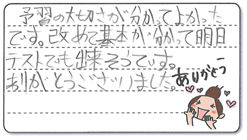 予習の大切さが分かってよかった
です。改めて基本が分って明日
テストでも出来そうです。
ありがとうございました。
ありがとう